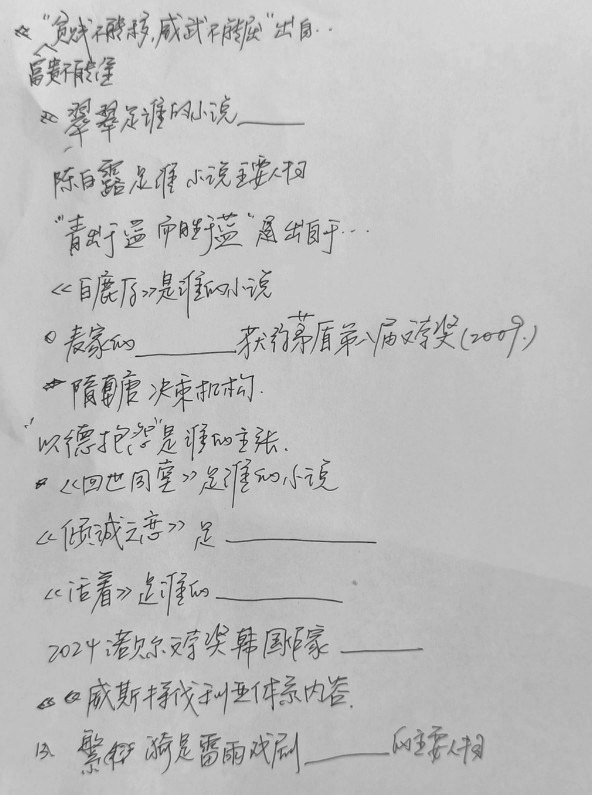 “贫贱不能移，威武不能屈”出自..
富贵不能淫
翠翠是谁的小说____
陈白露是谁小说主要人物
“青出于蓝而胜于蓝”是出自于...
《白鹿原》是谁的小说
麦家的____获得茅盾第八届文学奖(2009.)
隋唐决策机构.
“以德抱怨”是谁的主张.
《四世同堂》是谁的小说
《倾诚之恋》是____
《活着》是谁的____
2024诺贝尔文学奖韩国作家____
威斯特伐利亚体系内容.
13. 繁漪是雷雨戏剧____的主要人物